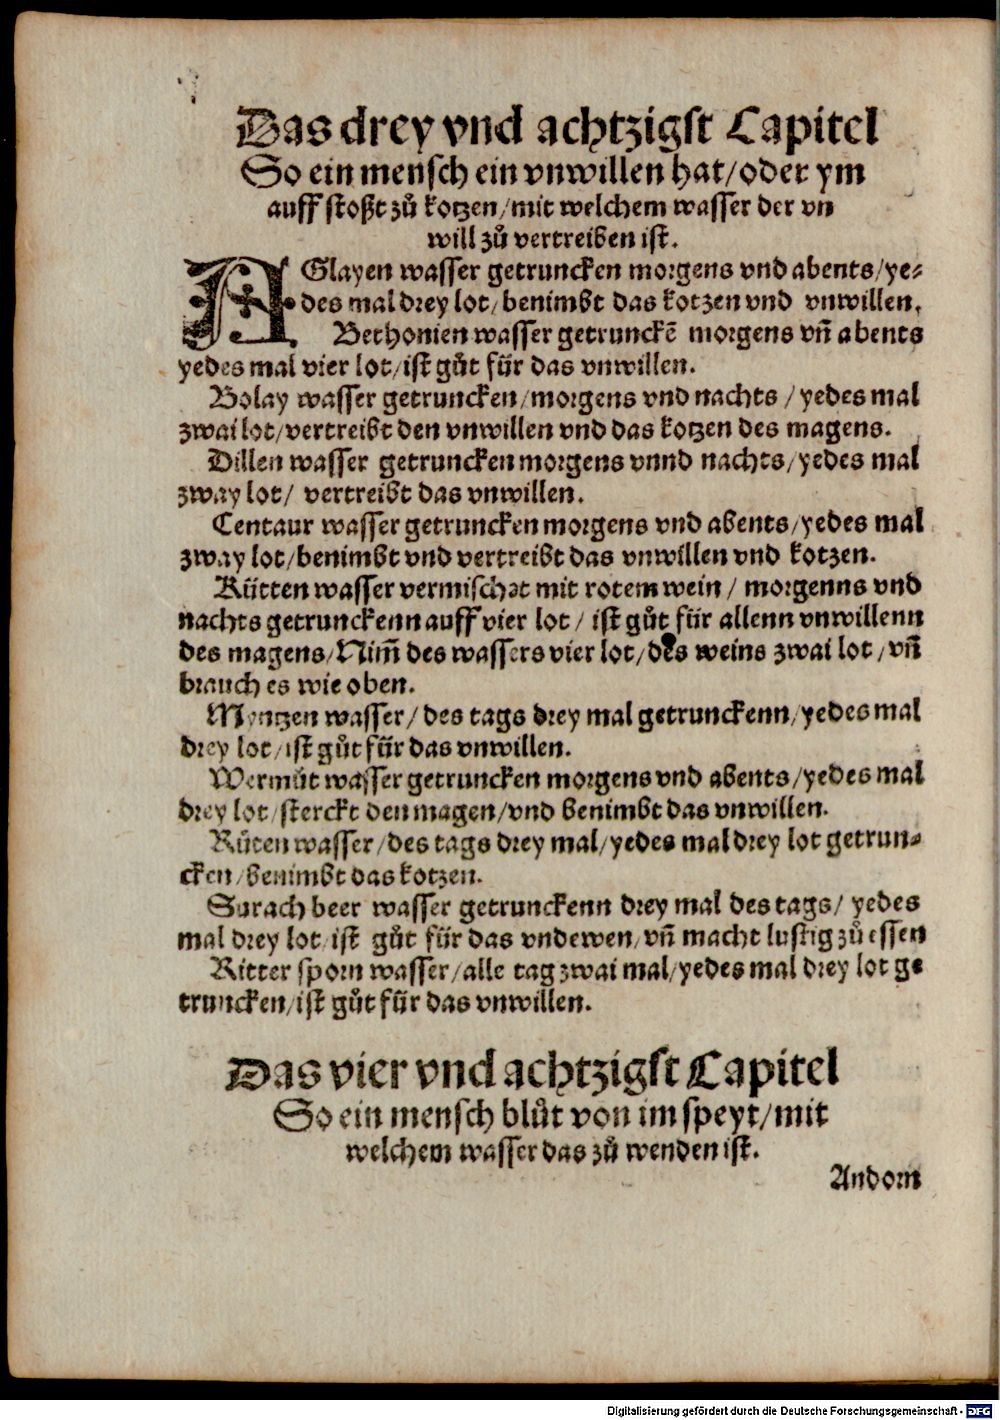 Das drey vnd achtzigst Capitel
So ein mensch ein vnwillen hat/oder ym
auff stoßt zů kotzen/mit welchem wasser der vn
will zů vertreiben ist.
AGlayen wasser getruncken morgens vnd abents/ye⸗
des mal drey lot/benimbt das kotzen vnd vnwillen.
Bethonien wasser getrunckẽ morgens vñ abents
yedes mal vier lot/ist gůt für das vnwillen.
Bolay wasser getruncken/morgens vnd nachts / yedes mal
zwai lot/vertreibt den vnwillen vnd das kotzen des magens.
Dillen wasser getruncken morgens vnnd nachts/yedes mal
zway lot/ vertreibt das vnwillen.
Centaur wasser getruncken morgens vnd abents/yedes mal
zway lot/benimbt vnd vertreibt das vnwillen vnd kotzen.
Kütten wasser vermischet mit rotem wein / morgenns vnd
nachts getrunckenn auff vier lot / ist gůt für allenn vnwillenn
des magens/Nim̃ des wassers vier lot/des weins zwai lot /vñ
brauch es wie oben.
Myntzen wasser/ des tags drey mal getrunckenn/yedes mal
drey lot/ist gůt für das vnwillen.
Wermůt wasser getruncken morgens vnd abents/yedes mal
drey lot/sterckt den magen/vnd benimbt das vnwillen.
Růten wasser/des tags drey mal/yedes mal drey lot getrun⸗
cken/benimbt das kotzen.
Surach beer wasser getrunckenn drey mal des tags/ yedes
mal drey lot/ist gůt für das vndewen/vñ macht lustig zů essen
Ritter sporn wasser/alle tag zwai mal/yedes mal drey lot ge
truncken/ist gůt für das vnwillen.
Das vier vnd achtzigst Capitel
So ein mensch blůt von im speyt/mit
welchem wasser das zů wenden ist.
Andorn
Digitalisierung gefördert durch die Deutsche Forschungsgemeinschaft - DFG